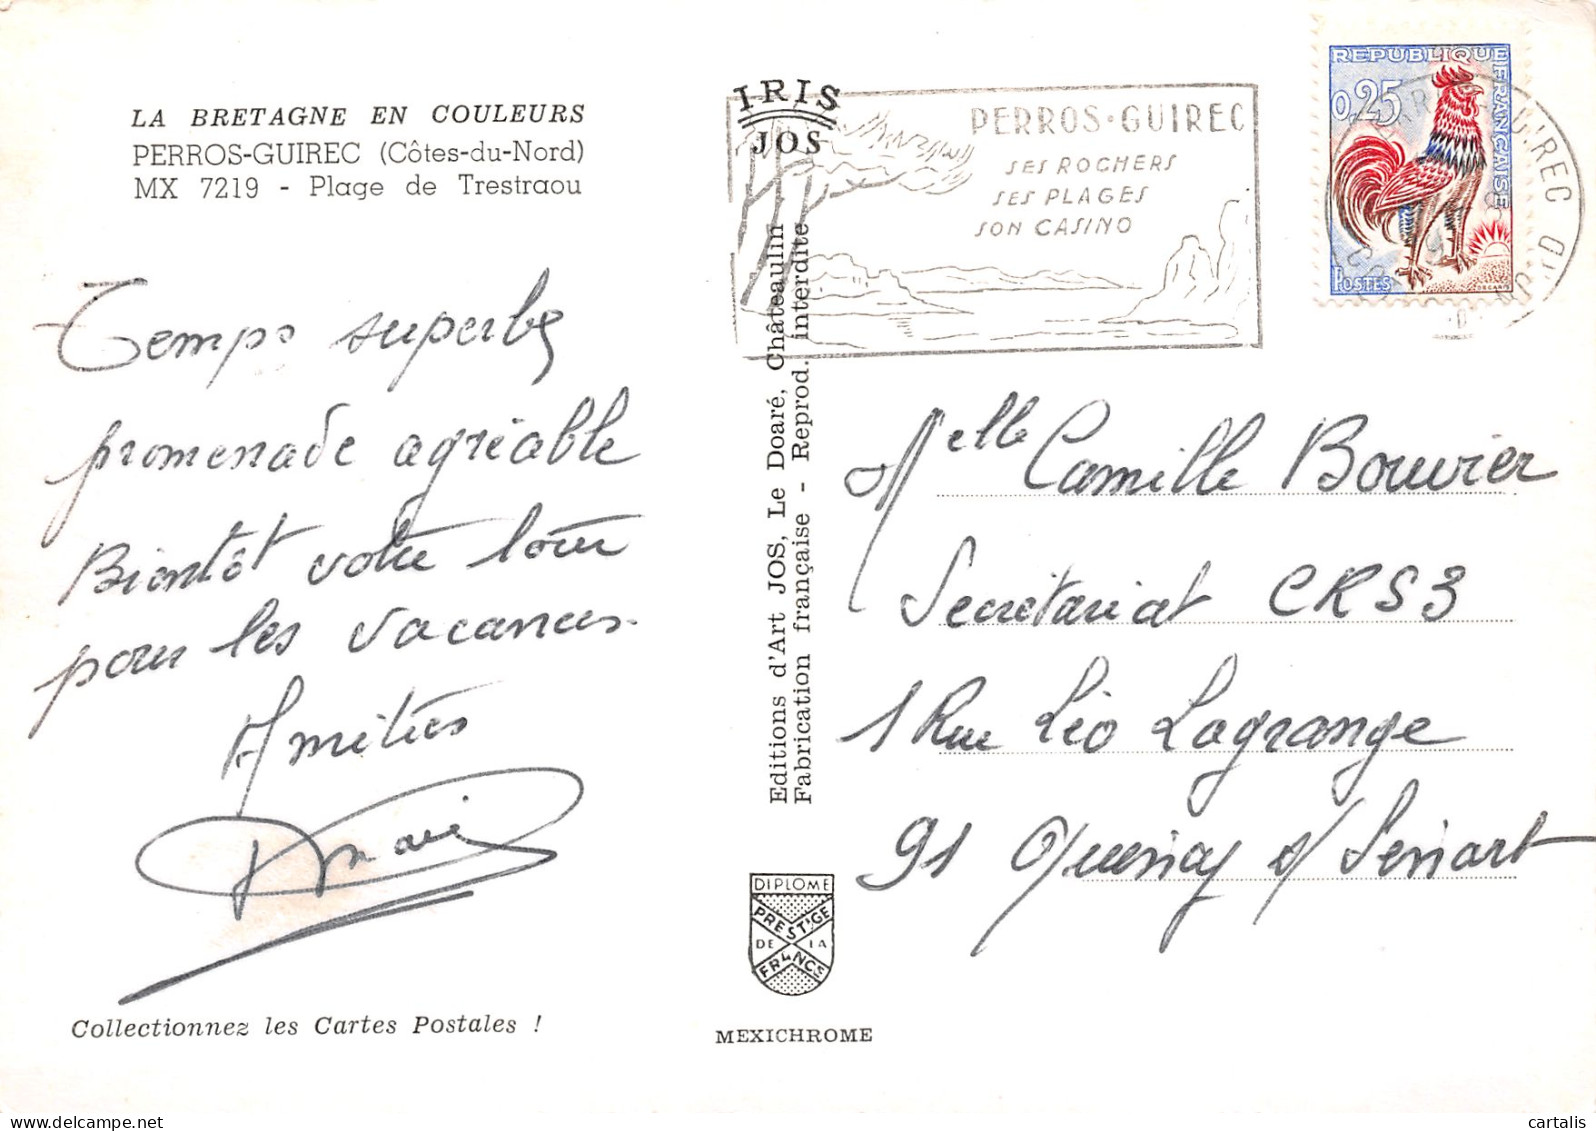 LA BRETAGNE EN COULEURS
PERROS-GUIREC (Côtes-du-Nord)
MX 7219 - Plage de Trestraou
Temps superbe
promenade agréable
Bientôt votre tour
pour les vacances.
Amitiés
Collectionnez les Cartes Postales !
IRIS
JOS
Editions d'Art JOS, Le Doaré, Châteaulin
Fabrication française - Reprod. interdite
DIPLOME
PRESTIGE
DE LA
FRANCE
MEXICHROME
PERROS-GUIREC
SES ROCHERS
SES PLAGES
SON CASINO
REPUBLIQUE FRANÇAISE
0,25
POSTES
DECARIS
Melle Camille Bouvier
Secrétariat CRS 3
1 Rue Léo Lagrange
91 Quincy s/ Senart
cartalis